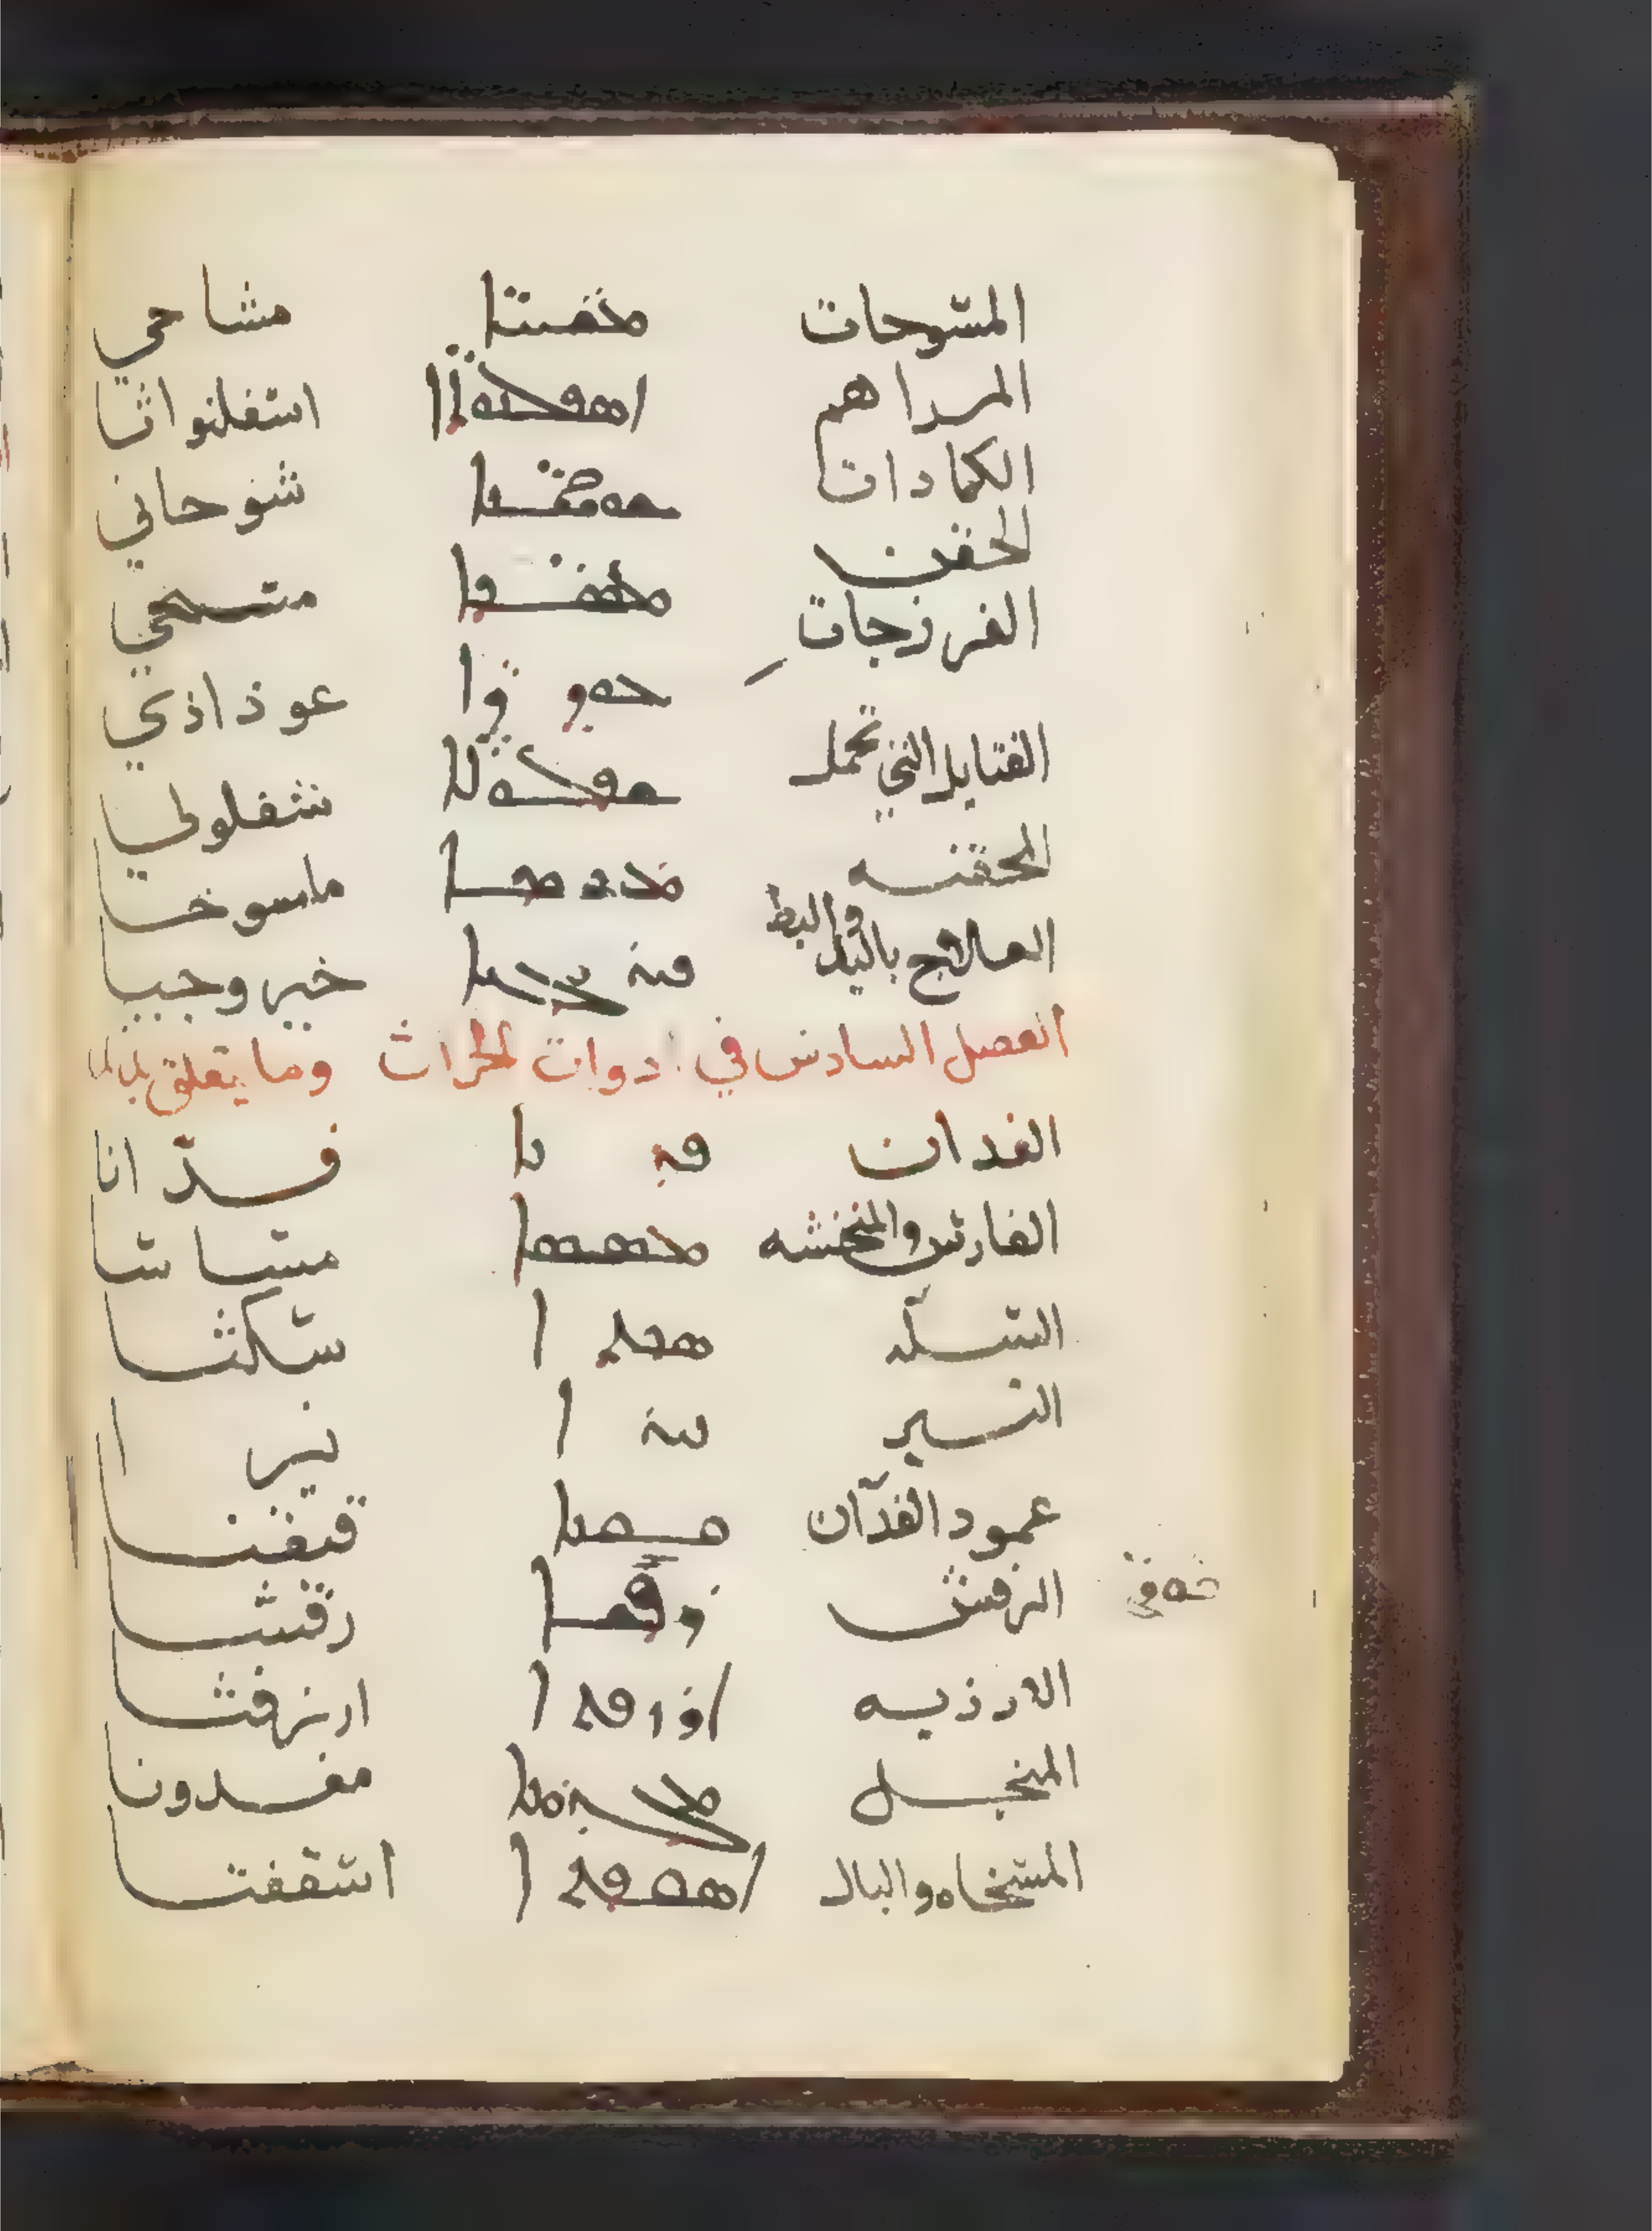 المسوحات ܡܫܚ̈ܐ مشاحي
المراهم ܐܣܦܠܢܘ̈ܬܐ اسفلنواثا
الكمادات شوحاني
الحقن متسحي
الفرزجات ܥܘܕܪ̈ܐ عوذاذي
الفتايل التي تحمل ܫܦܠܘ̈ܠܐ شفلولي
المحقنه ماسوخا
العالاج باليد والبط خيروجيا
الفصل السادس في ادوات الحراث وما يتعلق بذلك
الفدان ܦܕܢܐ فدّانا
الفارس والمنخشه ܡܣܣܐ مساسا
السكّه ܣܟܬܐ سكثا
النير ܢܝܪܐ نيرا
عمود الفدّان ܩܝܩܢܐ قيقنا
الرفش ܪܦܫܐ رفشا
الارذبه ܐܪܙܦܬܐ ارزفثا
المنجل ܡܓܕܘܢܐ مغدونا
المسحاه والبال ܐܣܩܦܬܐ اسقفتا